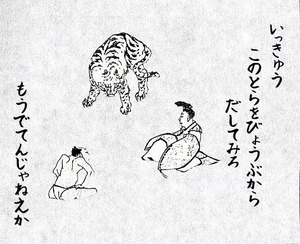 いっきゅう
このとらをびょうぶから
だしてみろ
もうでてんじゃねえか